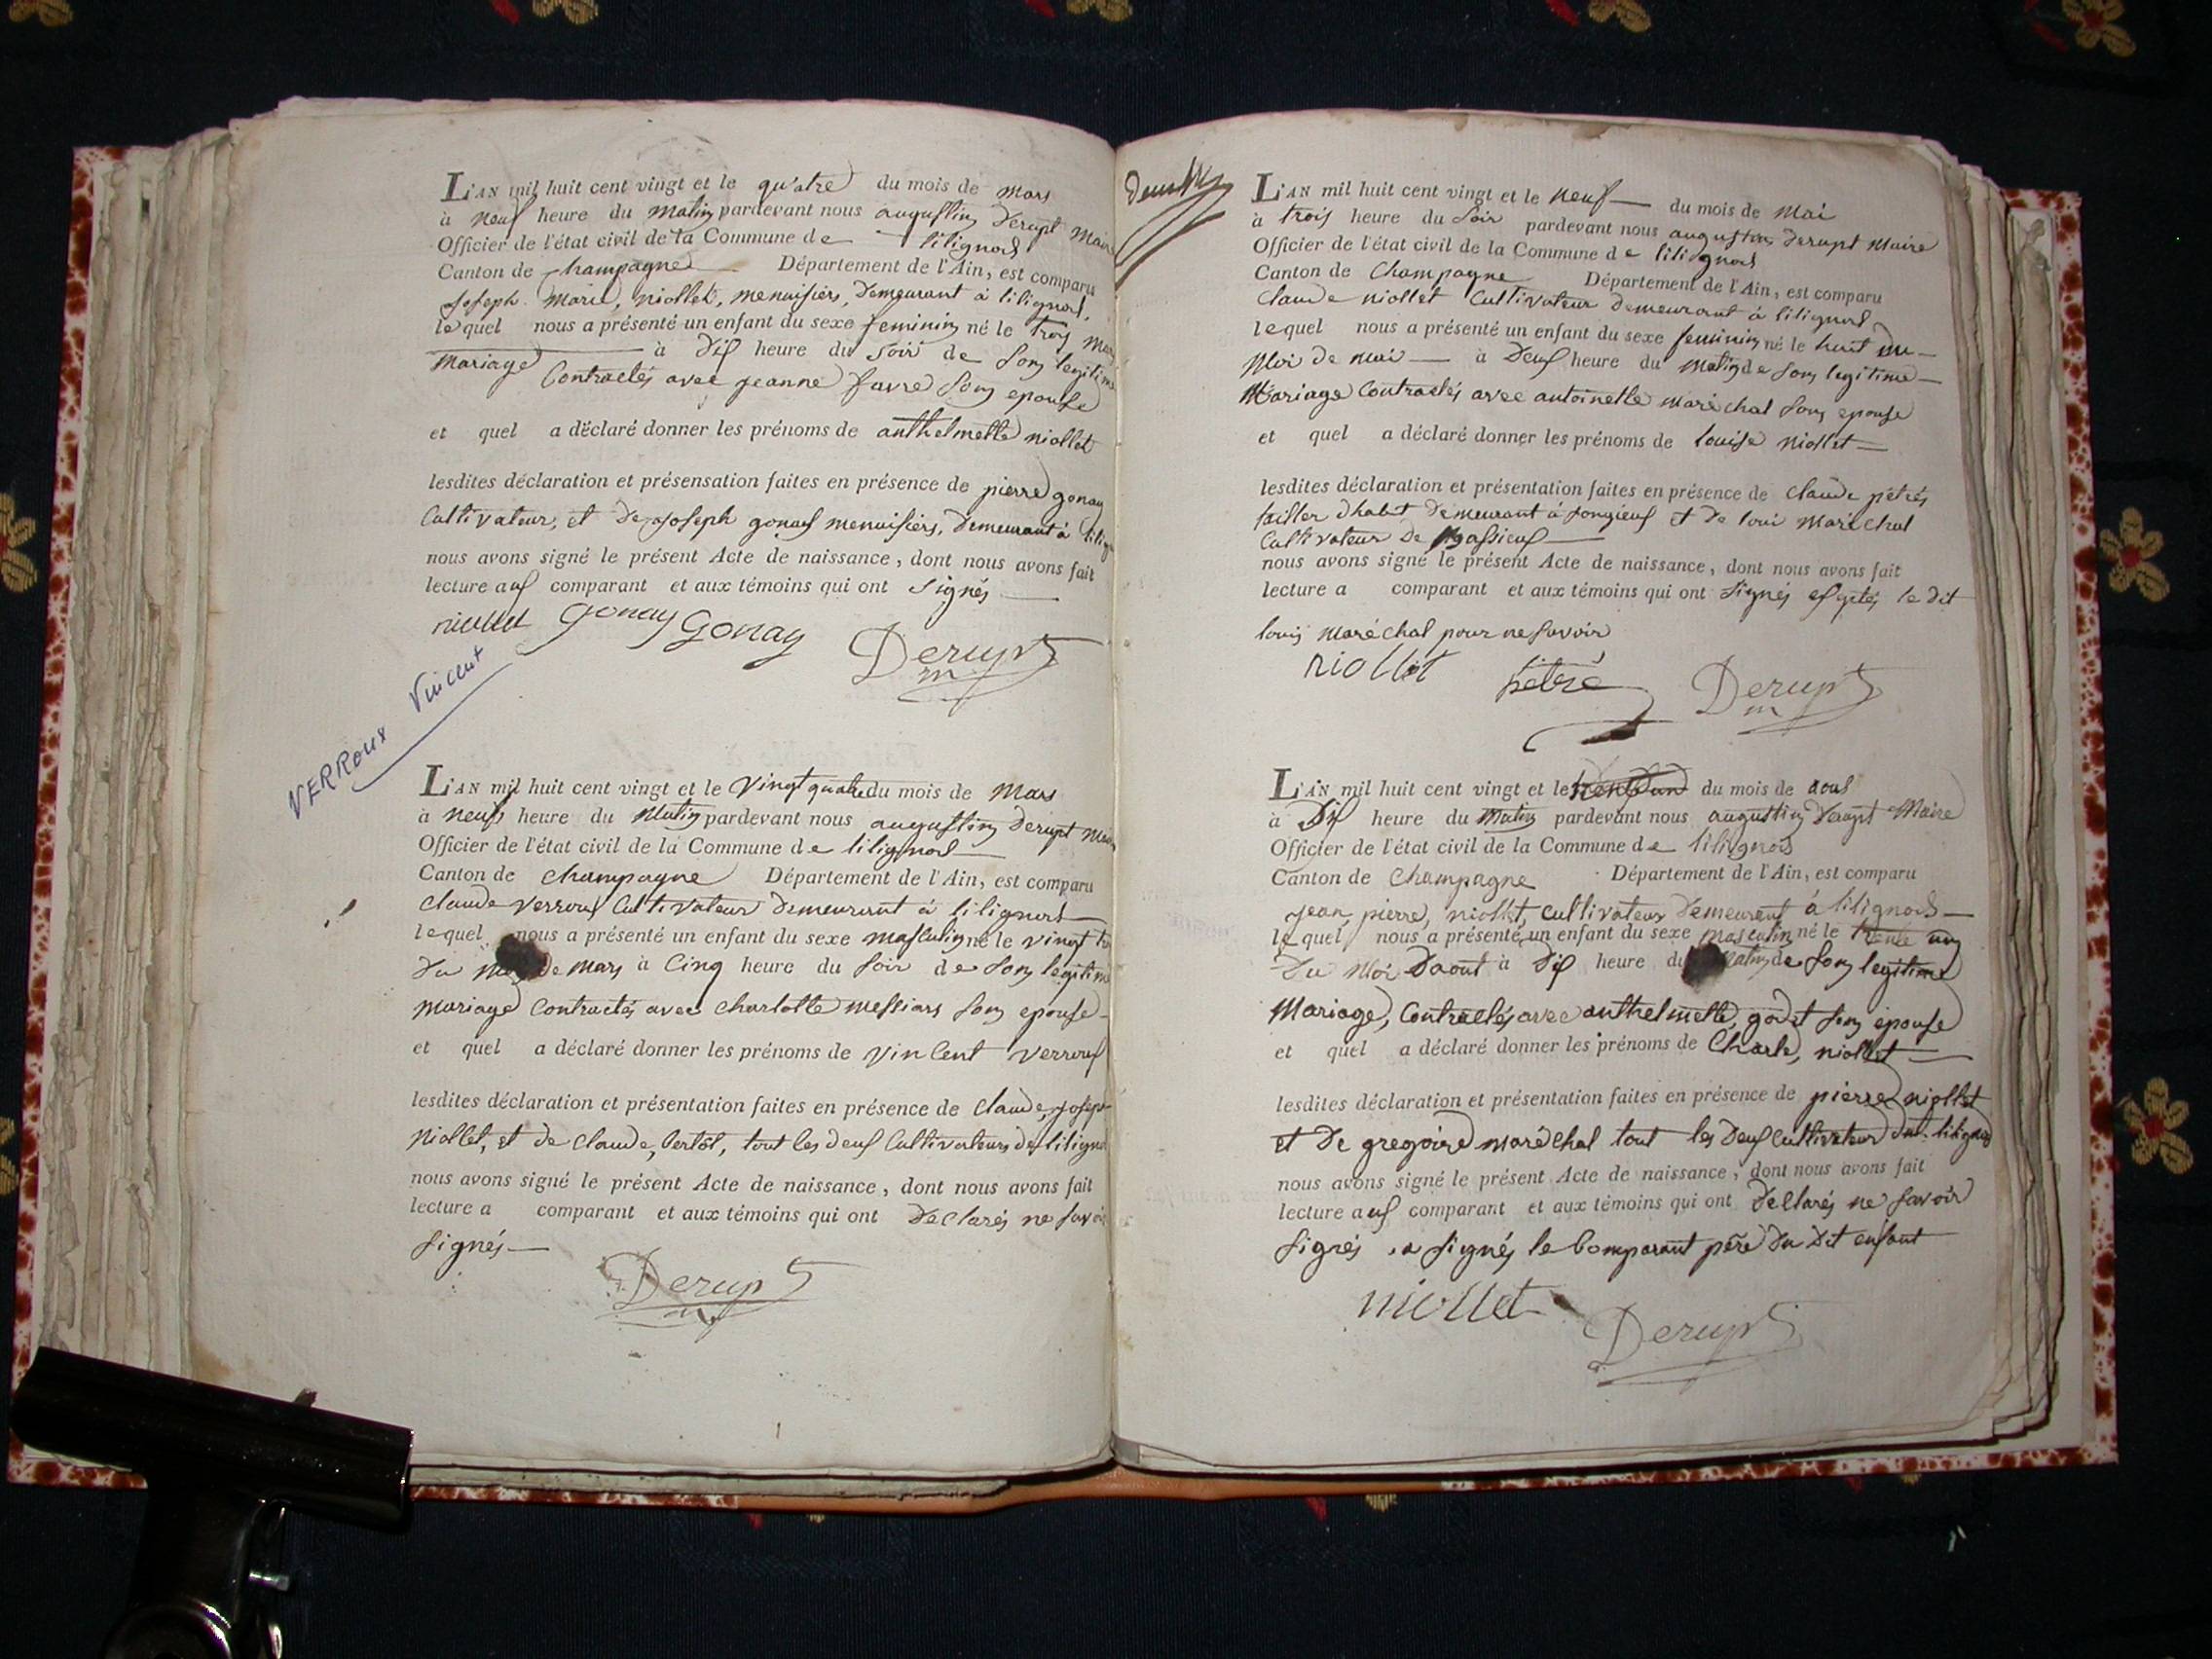 L'AN mil huit cent vingt et le quatre du mois de mars
à neuf heure du matin pardevant nous augustin Derupt Maire
Officier de l'état civil de la Commune de lilignod
Canton de champagne Département de l'Ain, est comparu
Joseph Marie, niollet, menuisiers, Demeurant à lilignod,
lequel nous a présenté un enfant du sexe feminin né le trois Mars
à Dix heure du soir de son legitime
mariage Contractés avec jeanne favre son epouse
et quel a déclaré donner les prénoms de anthelmette niollet
lesdites déclaration et présensation faites en présence de pierre gonay
Cultivateur, et De joseph gonod menuisiers, Demeurant à
nous avons signé le présent Acte de naissance, dont nous avons fait
lecture aux comparant et aux témoins qui ont signés
niollet Gonay Gonay
Derupt
m
VERROUX Vincent
L'AN mil huit cent vingt et le vingt quatre du mois de Mars
à neuf heure du Matin pardevant nous augustin Derupt
Officier de l'état civil de la Commune de lilignod
Canton de champagne Département de l'Ain, est comparu
Claude verroux Cultivateur Demeurant à lilignod
lequel nous a présenté un enfant du sexe masculin né le vingt
Du de Mars à Cinq heure du soir de son legitime
mariage Contractés avec charlotte messiars son epouse
et quel a déclaré donner les prénoms de vincent verroux
lesdites déclaration et présentation faites en présence de Claude, joseph
Niollet, et de Claude, bertôt, tout les deux Cultivateurs de
nous avons signé le présent Acte de naissance, dont nous avons fait
lecture a comparant et aux témoins qui ont Declarés ne savoir
signés
Derupt
m
L'AN mil huit cent vingt et le neuf du mois de Mai
à trois heure du soir pardevant nous augustin Derupt Maire
Officier de l'état civil de la Commune de lilignod
Canton de Champagne Département de l'Ain, est comparu
Claude niollet Cultivateur demeurant à lilignod
lequel nous a présenté un enfant du sexe feminin né le huit du
Moi de mai à Deux heure du matin de son legitime
Mariage Contractés avec antoinette maréchal son epouse
et quel a déclaré donner les prénoms de louise niollet
lesdites déclaration et présentation faites en présence de Claude pétrés
tailler dhabit Demeurant à songieux et De loui Maréchal
Cultivateur De Massieux
nous avons signé le présent Acte de naissance, dont nous avons fait
lecture a comparant et aux témoins qui ont signés le dit
louis Maréchal pour ne savoir
niollet pétré Derupt
m
L'AN mil huit cent vingt et le trente un du mois de aout
à Dix heure du Matin pardevant nous augustin Derupt Maire
Officier de l'état civil de la Commune de lilignod
Canton de Champagne Département de l'Ain, est comparu
jean, pierre, niollet, cultivateur Demeurent à lilignod
lequel nous a présenté un enfant du sexe masculin né le trente un
Du Moi Daout à Dix heure du matin de son legitime
Mariage, Contractés avec anthelmette, godet son epouse
et quel a déclaré donner les prénoms de Charle, niollet
lesdites déclaration et présentation faites en présence de pierre niollet
et De gregoire maréchal tout les Deux Cultivateur
nous avons signé le présent Acte de naissance, dont nous avons fait
lecture aux comparant et aux témoins qui ont Déclarés ne savoir
signés a signés le Comparant père Du Dit enfant
niollet
Derupt